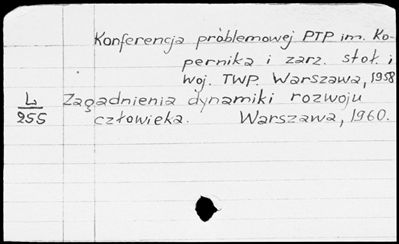 Konferencja problemowej PTP im. Ko-
pernika i zarz. stoł. i
woj. TWP. Warszawa, 1958
L
255
Zagadnienia dynamiki rozwoju
człowieka. Warszawa, 1960.